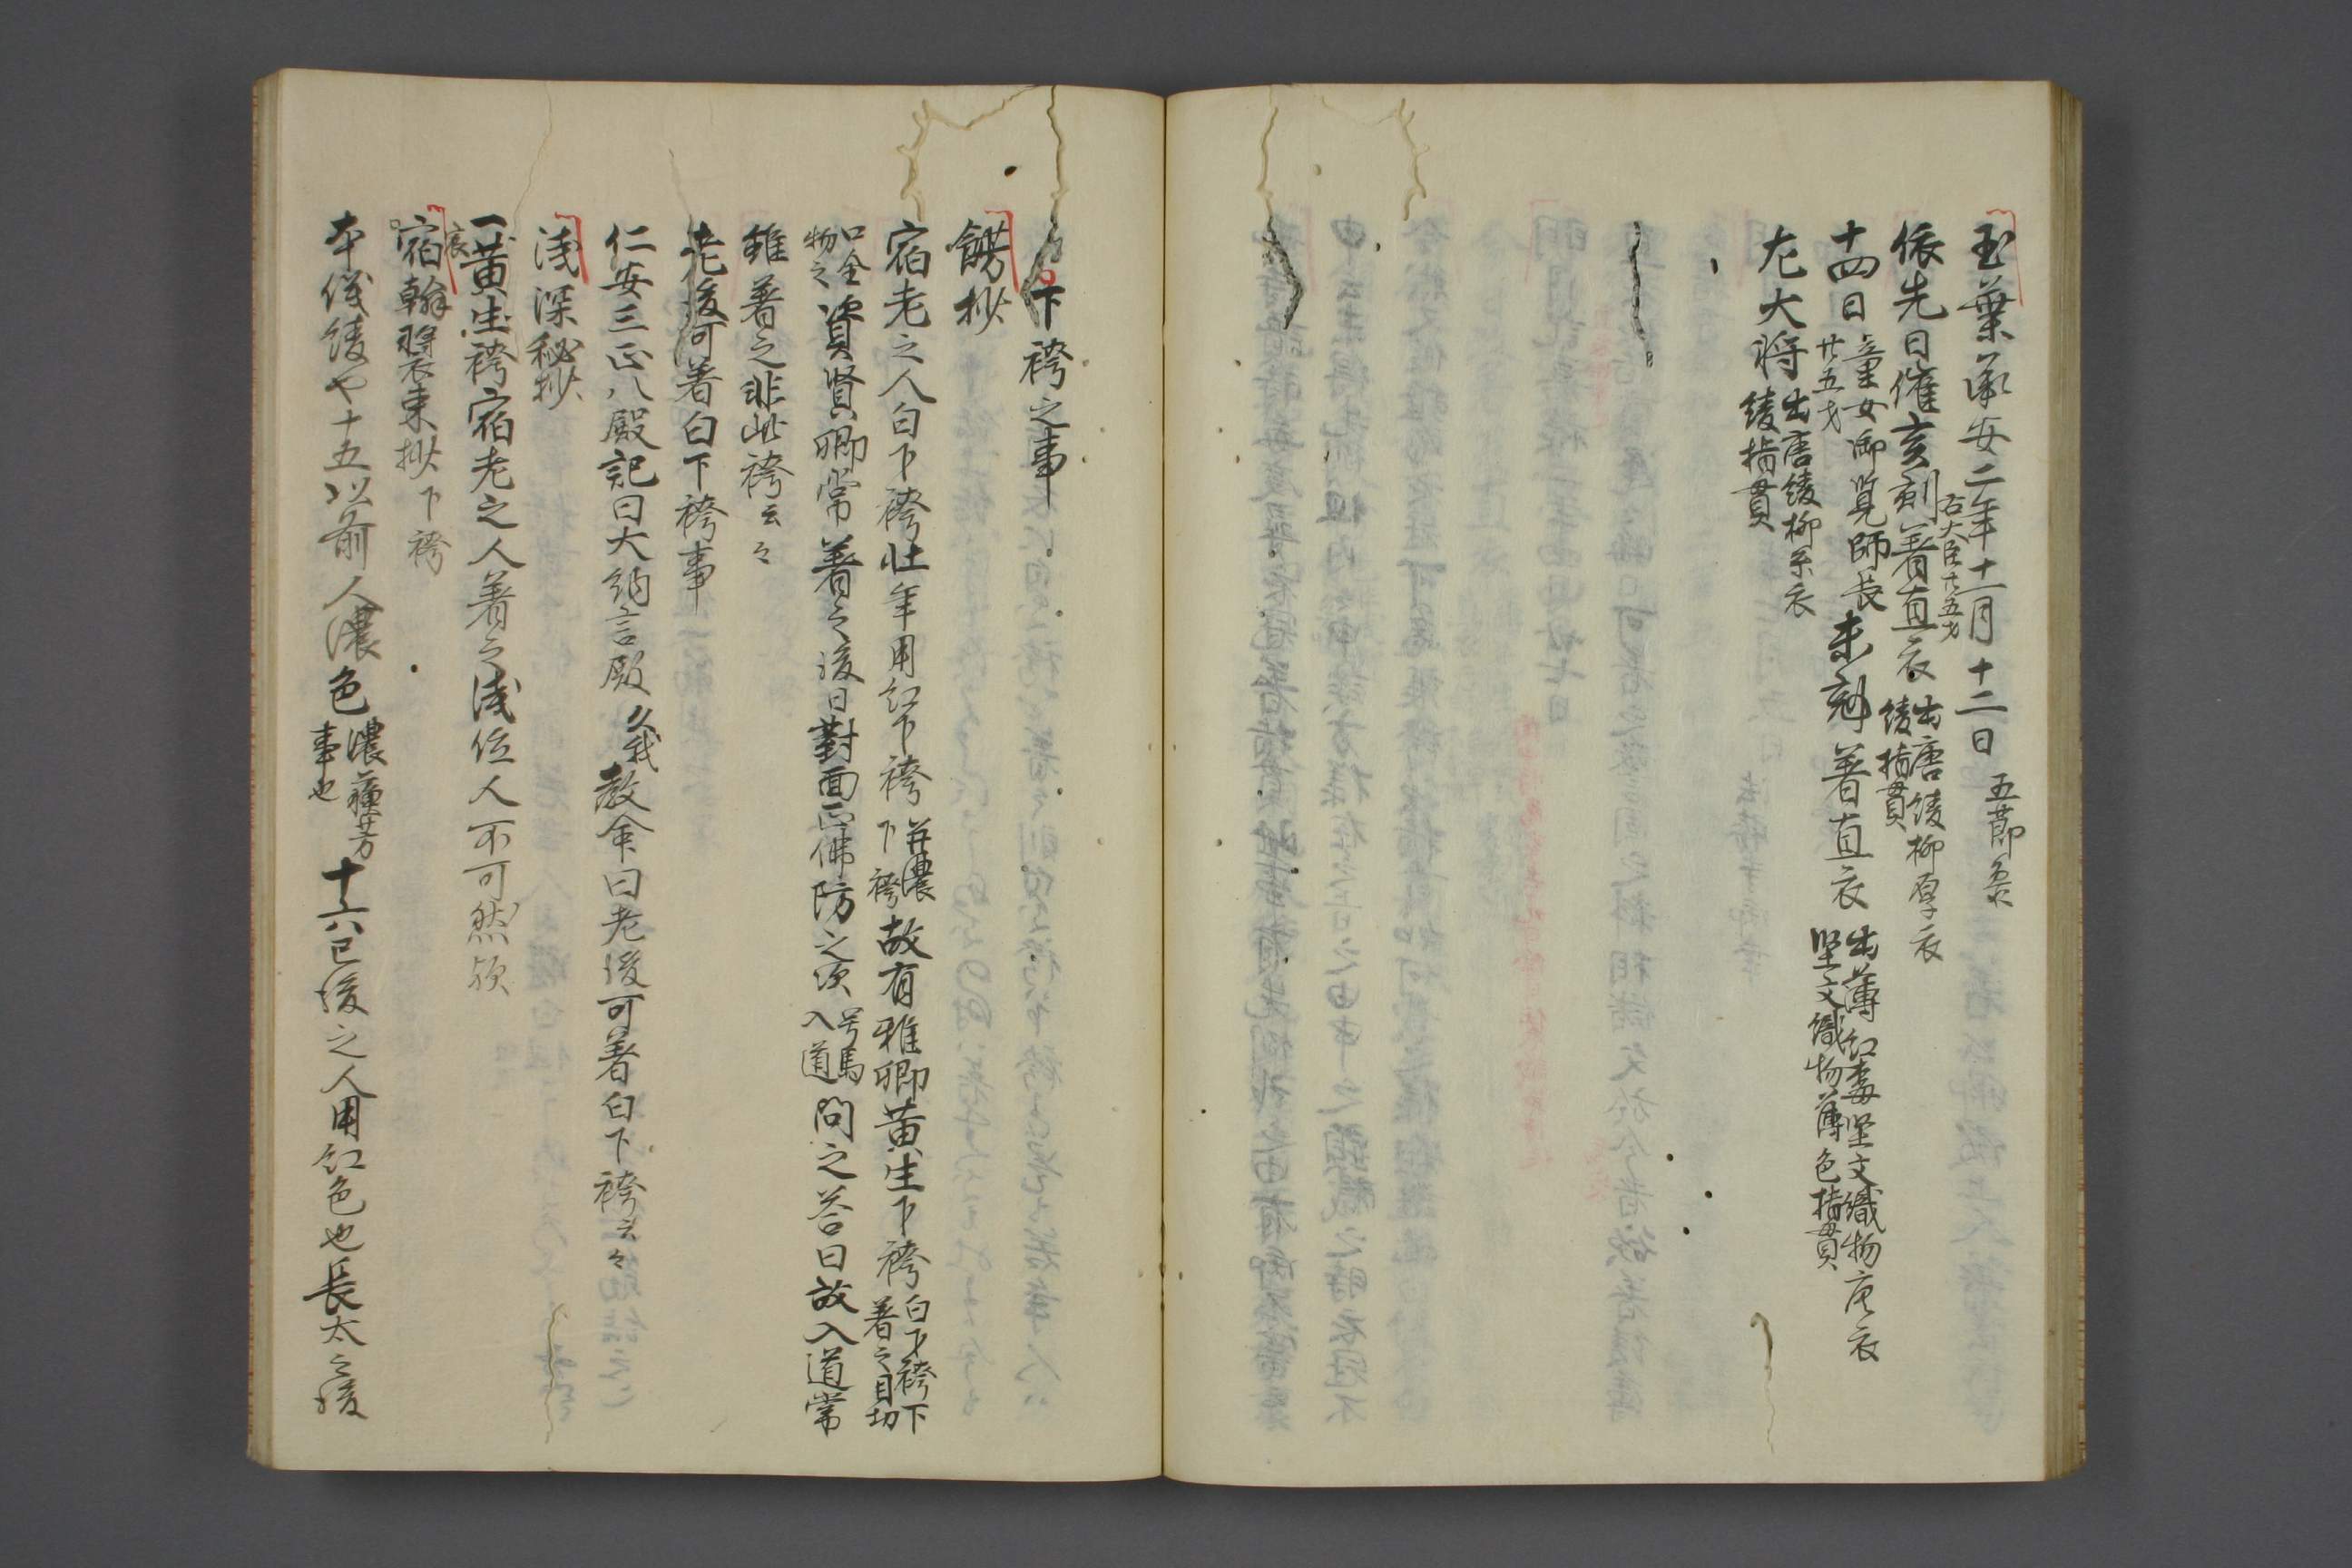 玉葉承安二年十一月十二日 五節参
右大臣廿五才
依先日催亥刻著直衣 出唐綾柳厚衣
綾指貫
十四日 童女御覧師長
廿五才 未剋著直衣 出薄紅妻堅文織物 衣
堅文織物薄色指貫
左大将 出唐綾柳 衣
綾指貫
下袴之事
餝抄
宿老之人白下袴壮年用紅下袴 并濃
下袴 故有雅卿黄生下袴 白下袴下
著之目切
口全
物之 資賢卿常著之後日對面正佛防之次 号馬
入道 問之答曰故入道常
雖著之非此袴云々
老後可着白下袴事
仁安三正八殿記曰大納言殿 久我 教命曰老後可著白下袴云々
浅深秘抄
一黄生袴宿老之人著之浅位人不可然歟
宿翰装束抄下袴
本儀綾や十五以前人濃色 濃蘓芳
事也 十六已後之人用紅色也長太之後